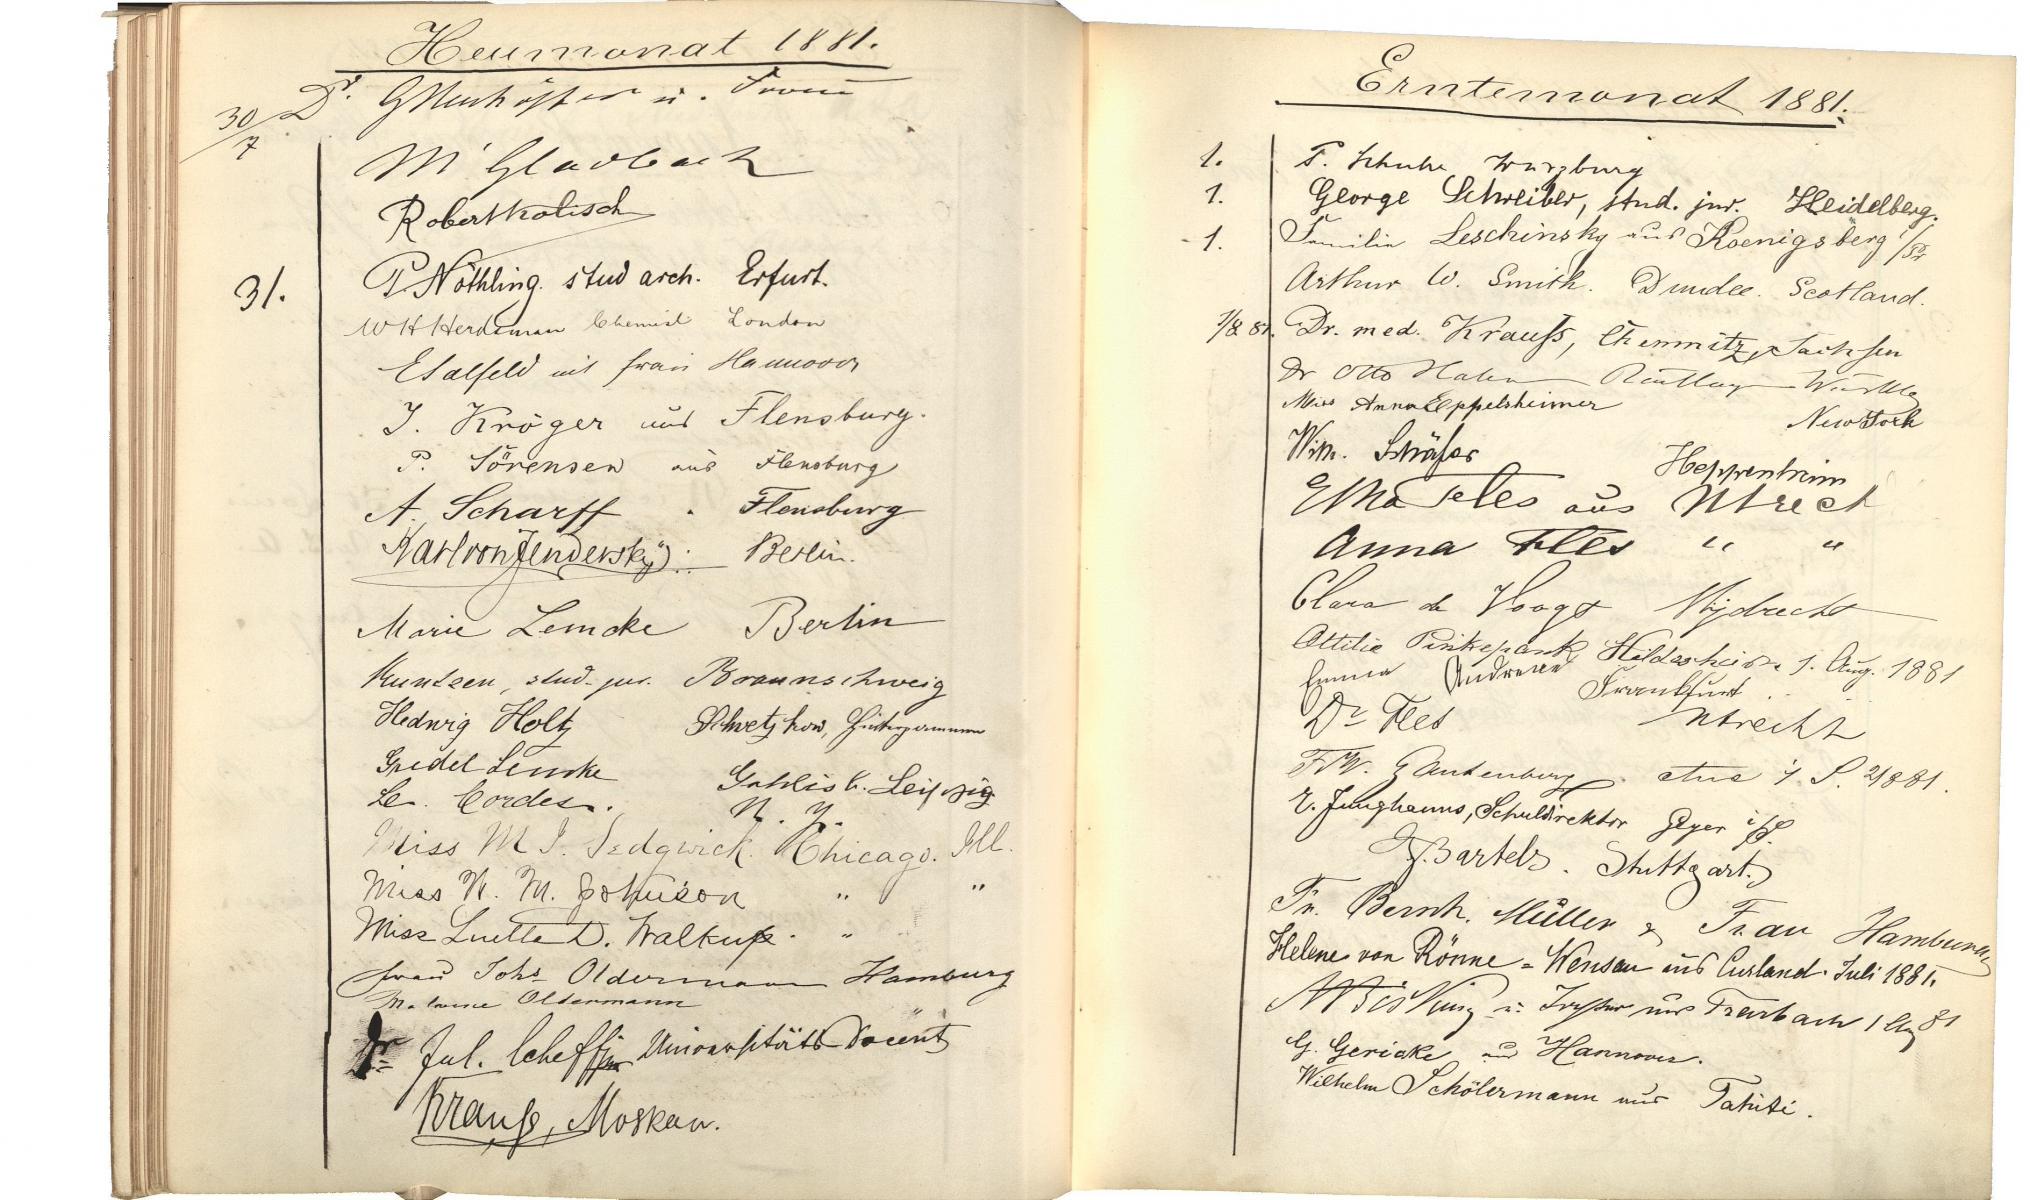 Heumonat 1881.
30/7 Dr. u. Frau
M'Gladbach
Robert Kolisch
31. P. Nöthling. stud arch. Erfurt.
W H Herdsman Chemist London
E Salfeld mit Frau Hannover
J. Kröger aus Flensburg.
P. Sörensen aus Flensburg
A. Scharff . Flensburg
Karl von Jendersky Berlin.
Marie Lemcke Berlin
Kuntzen, stud. jur. Braunschweig
Hedwig Holtz Schwetzkow, Hinterpommern
Gredel Lemke Gohlis b. Leipzig
Cordes. N. Y.
Miss M J. Sedgwick. Chicago. Ill.
Miss N. M. Johnson " "
Miss Luella D. Walkup. "
Frau Johs Oldermann Hamburg
Oldermann
Dr Jul. Universitäts-Docent
Krauß, Moskau.
Erntemonat 1881.
1. Würzburg
1. George Schreiber, stud. jur. Heidelberg.
1. Familie Leschinsky aus Koenigsberg i/Pr
Arthur W. Smith. Dundee. Scotland.
1/8 81. Dr. med. Krauſs, Chemnitz, Sachsen
Dr Otto Hahn Reutlingen
Miss Anna Eppelsheimer New York
Wilh. Schäfer Heppenheim
Etha Fles aus Utrecht
Anna Fles " "
Clara de Voogt Mijdrecht
Ottilie Pinkepank Hildesheim 1. Aug. 1881
Emma Andreae Frankfurt
Dr Fles Utrecht
F W.
E. Junghanns, Schuldirektor Geyer i/S.
Bartels. Stuttgart.
Fr. Bernh. Müller & Frau Hamburg
Helene von Rönne-Wensau aus Curland. Juli 1881.
u. aus Trarbach 1 Aug 81
G. Gericke aus Hannover.
Wilhelm Schölermann aus Tahiti.